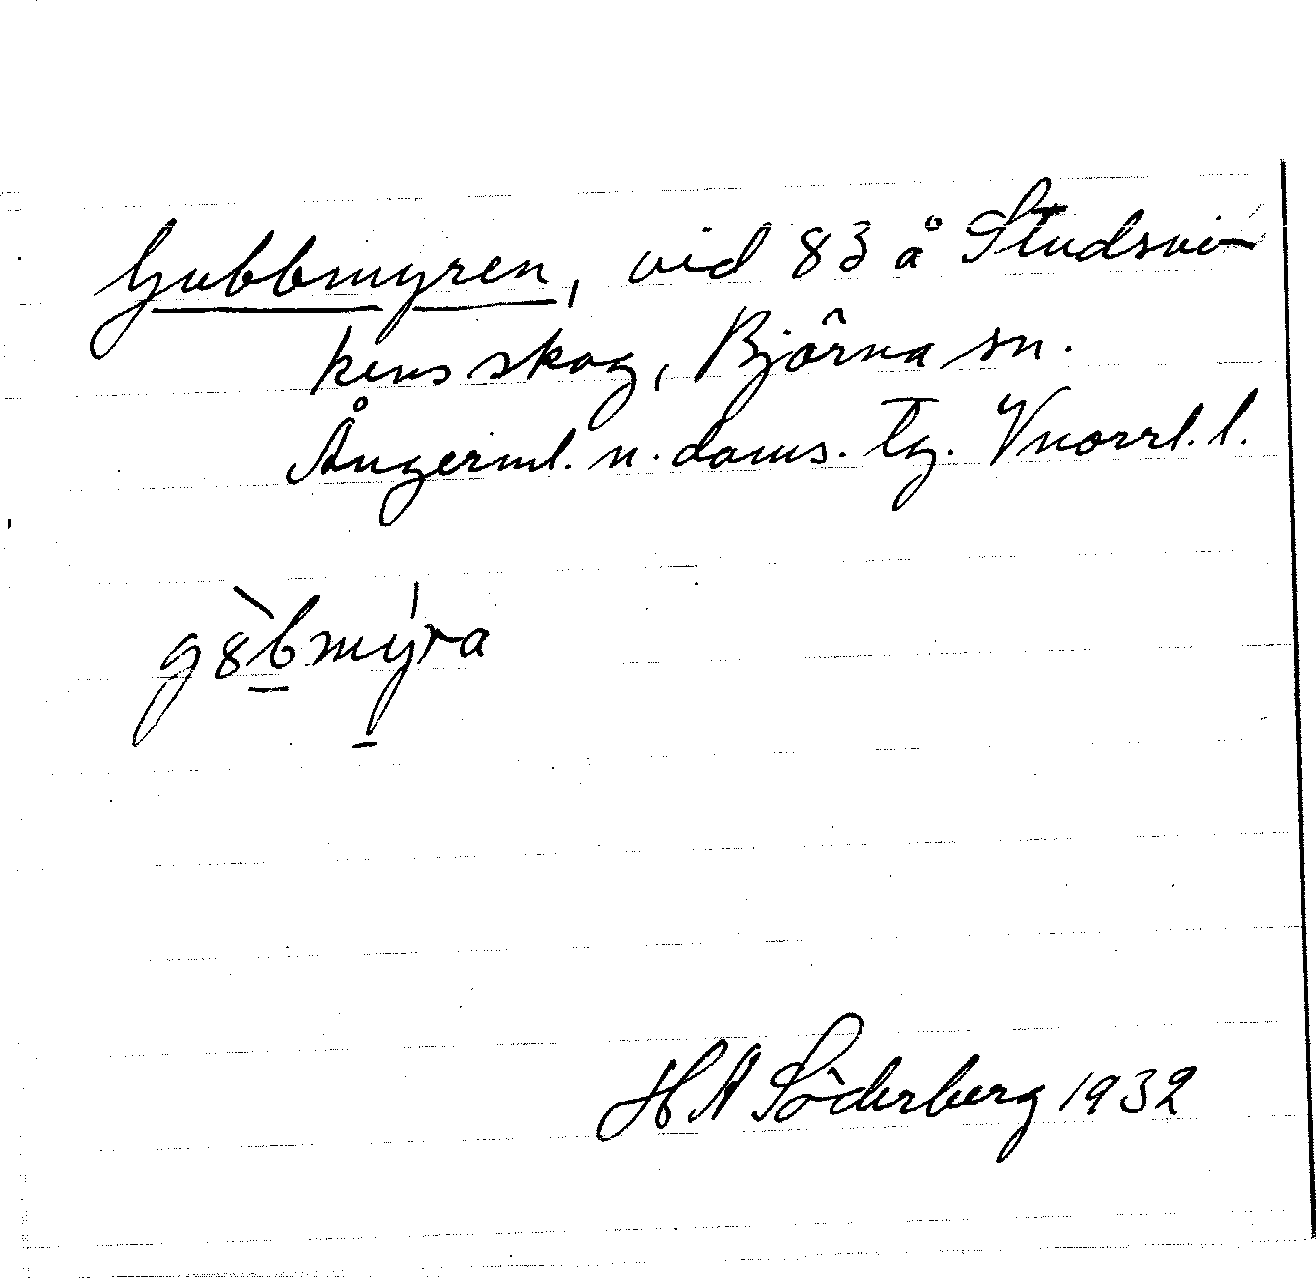 Gubbmyren, vid 83 å Studsvi-
kens skog, Björna sn.
Ångerml. n. doms. Tg. Vnorrl. l.
g8̀bmýra
H A Söderberg 1932